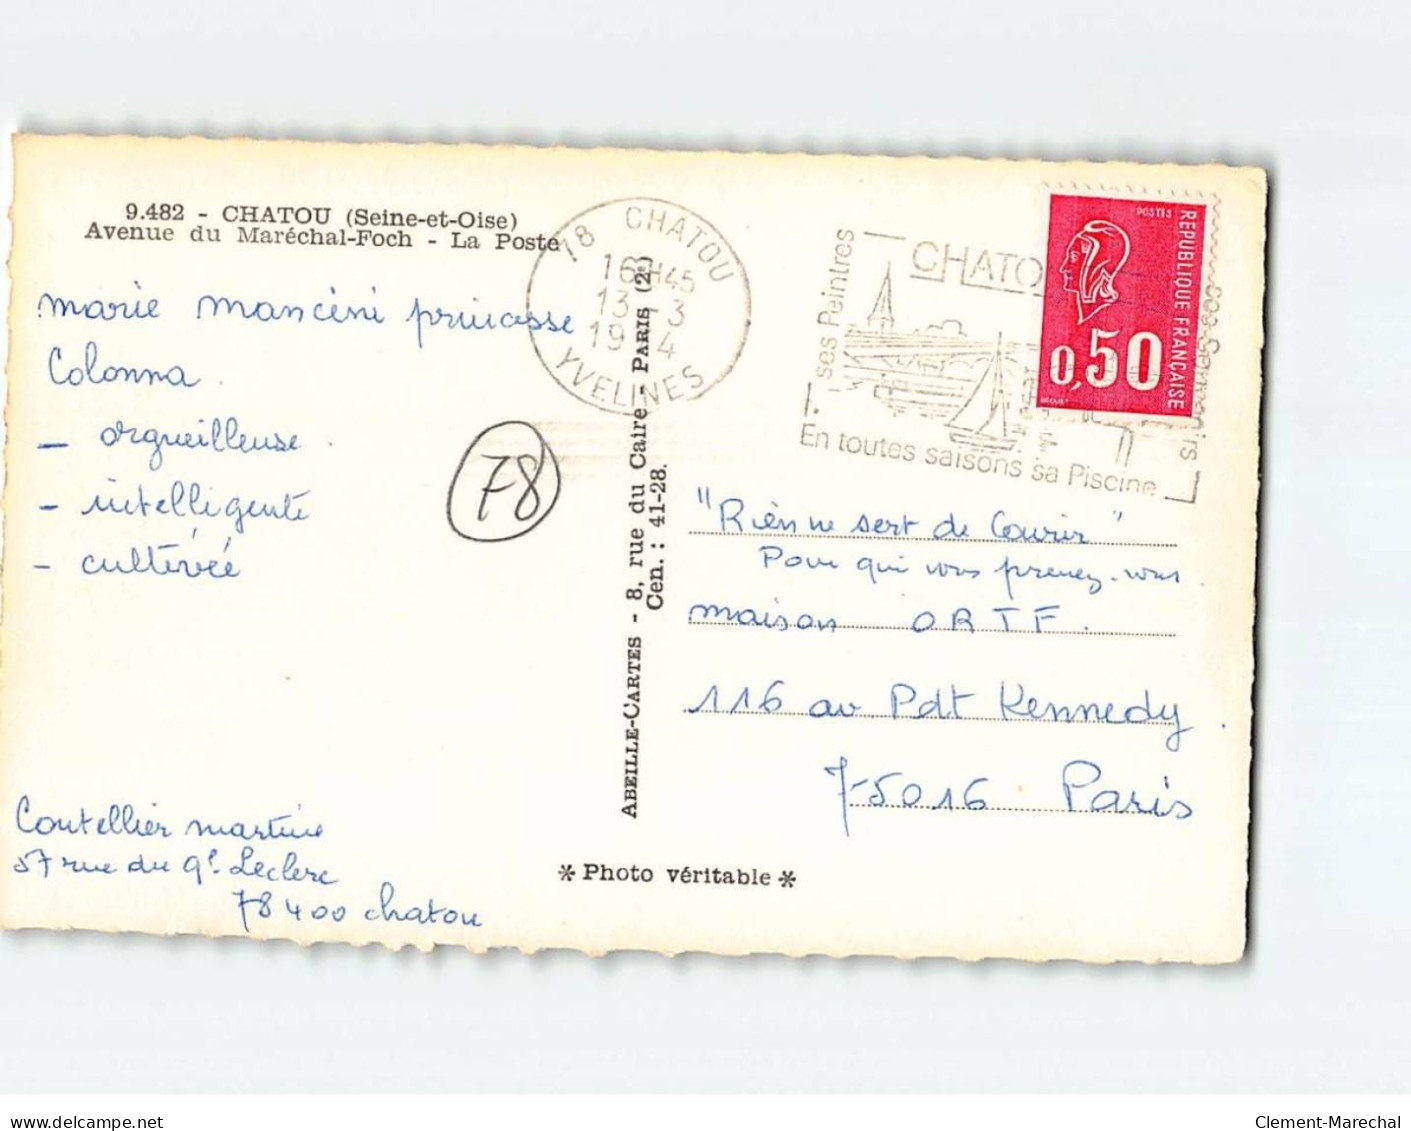 9.482 - CHATOU (Seine-et-Oise)
Avenue du Maréchal-Foch - La Poste
marie mancini princesse
Colonna.
- orgueilleuse.
- intelligente
- cultivée
78
Coutellier martine
57 rue du Gl Leclerc
78400 chatou
ABEILLE-CARTES - 8, rue du Caire - PARIS (2e)
Cen. : 41-28.
* Photo véritable *
78 CHATOU
16H45
13-3
19 4
YVELINES
CHATO
ses Peintres
En toutes saisons sa Piscine
POSTES
REPUBLIQUE FRANÇAISE
0,50
"Rien ne sert de Courir"
Pour qui vous prenez-vous.
maison ORTF.
116 av Pdt Kennedy.
75016 Paris
delcampe.net
Clement-Marechal